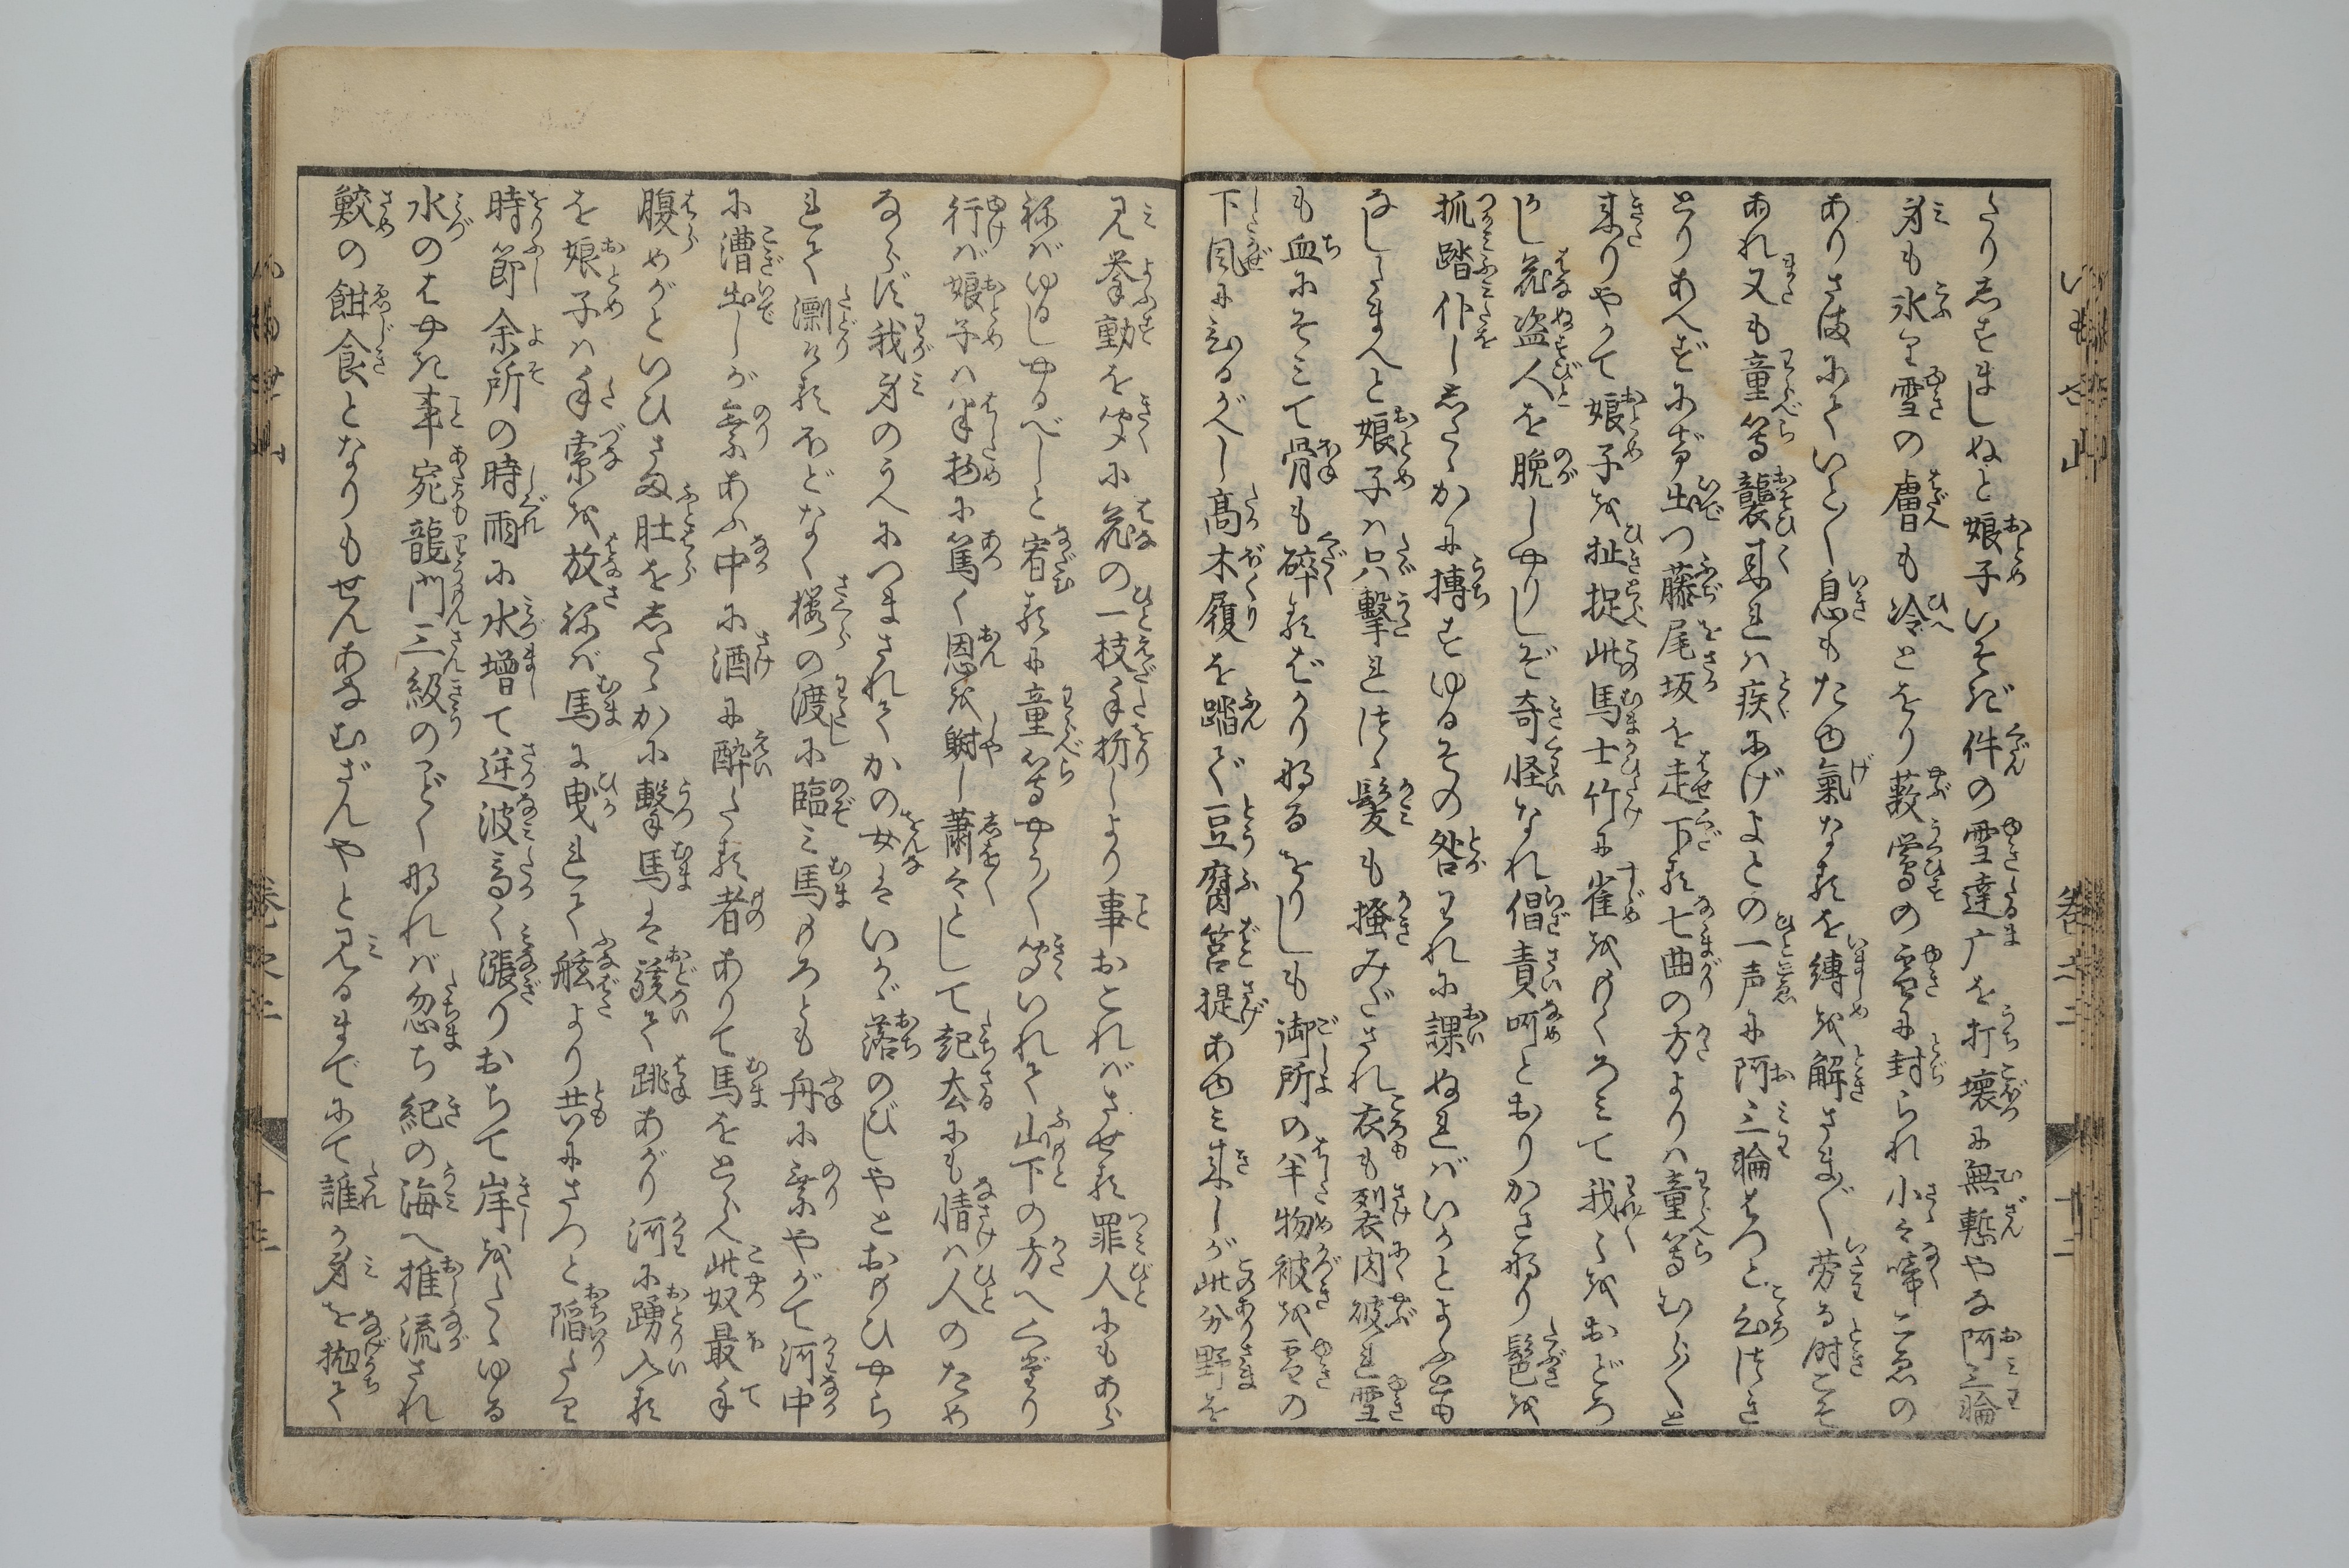 たりあへずましぬと娘子いそぎ件の雪達广を打壊に無慙やな阿三輪
身も氷り雪の膚も冷とをり薮鶯の雪に封られ小々啼こゑの
ありさまにていと〱息もたゆ氣なるを縛を解さま〲労る時こそ
あれ又も童等襲来れハ疾にげよとの一声に阿三輪はつと心つき
とりあへずにげ出つ藤尾坂を走下る七曲の方よりハ童等むら〱と
来りやがて娘子を扯捉此馬士竹に雀をもくろみて我〻をおどろ
かし花盗人を脱しやりしぞ奇怪なれ倡責呵とおりかさなり髷を
抓踏仆ししたゝかに摶すゆるその咎われに課ぬればいかとよふとも
なしたまへと娘子ハ只撃れつゝ髪も掻みだされ衣も裂肉破れ雪
も血にそみて骨も砕るばかりなるをりしも御所の半物被を雪の
下風に翻るがへし高木履を踏で豆腐筥提あゆミ来しが此分野を
見挙動を聞に花の一技手折しより事おこればさせる罪人にもあら
ねばゆるしやるべしと宥るに童等やう〱聞いれて山下の方へくだり
行ば娘子ハ半物に篤く恩を謝し蕭々として起去にも情ハ人のため
ならず我身のうへにつまされてかの女はいかゞ落のびしやとおもひやら
れて漂ふほどなく桜の渡に臨み馬もろとも舟に乗やがて河中
に漕出しが乗あふ中に酒に酔たる者ありて馬をとらへ此奴最手
腹めがといひさま肚をしたゝかに撃馬は駭て跳あがり河に踊入る
を娘子ハ手索を放ねば馬に曳れて舷より共にさつと陥たり
時節余所の時雨に水増て逆波高く漲りおちて岸をたゝゆる
水のはやき事宛龍門三級のごとくなれば忽ち紀の海へ推流され
鮫の餌食となりもせんあなむざんやと見るまでにて誰か身を抛て